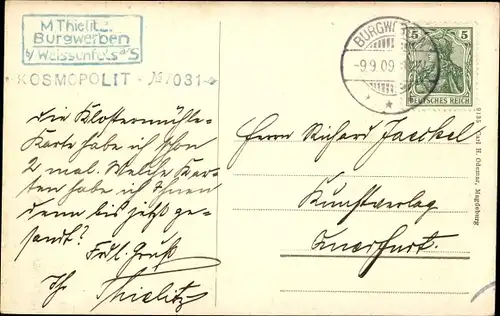 M Thielitz
Burgwerben
b/Weissenfels a/S
KOSMOPOLIT - No 7031
BURGWERBEN
-9.9.09
5 5
DEUTSCHES REICH
Die Klostermühle-
Karte habe ich schon
2 mal. Welche Kar-
ten habe ich Ihnen
denn bis jetzt ge-
sandt?
Frdl. Gruß
Ihr Thielitz
Herrn Richard Jaeckel
Kunstverlag
Querfurt.
9135 Carl H. Odemar, Magdeburg